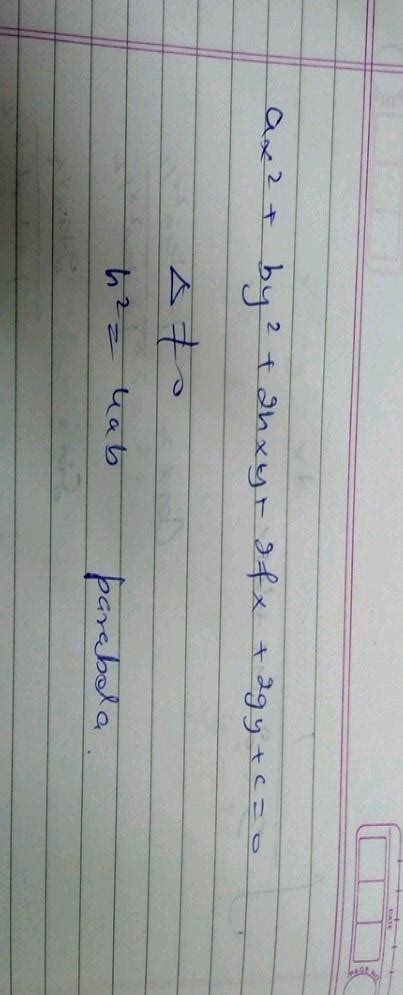 ax² + by² + 2hxy + 2fx + 2gy + c = 0
Δ ≠ 0
h² = 4ab parabola.
DATE
PAGE NO